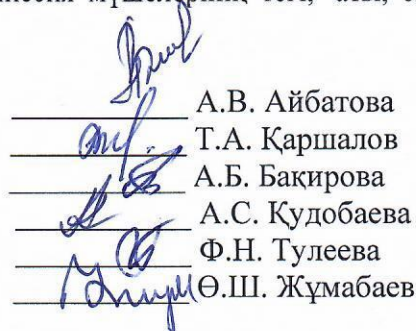 А.В. Айбатова
Т.А. Қаршалов
А.Б. Бақирова
А.С. Құдобаева
Ф.Н. Тулеева
Ө.Ш. Жұмабаев